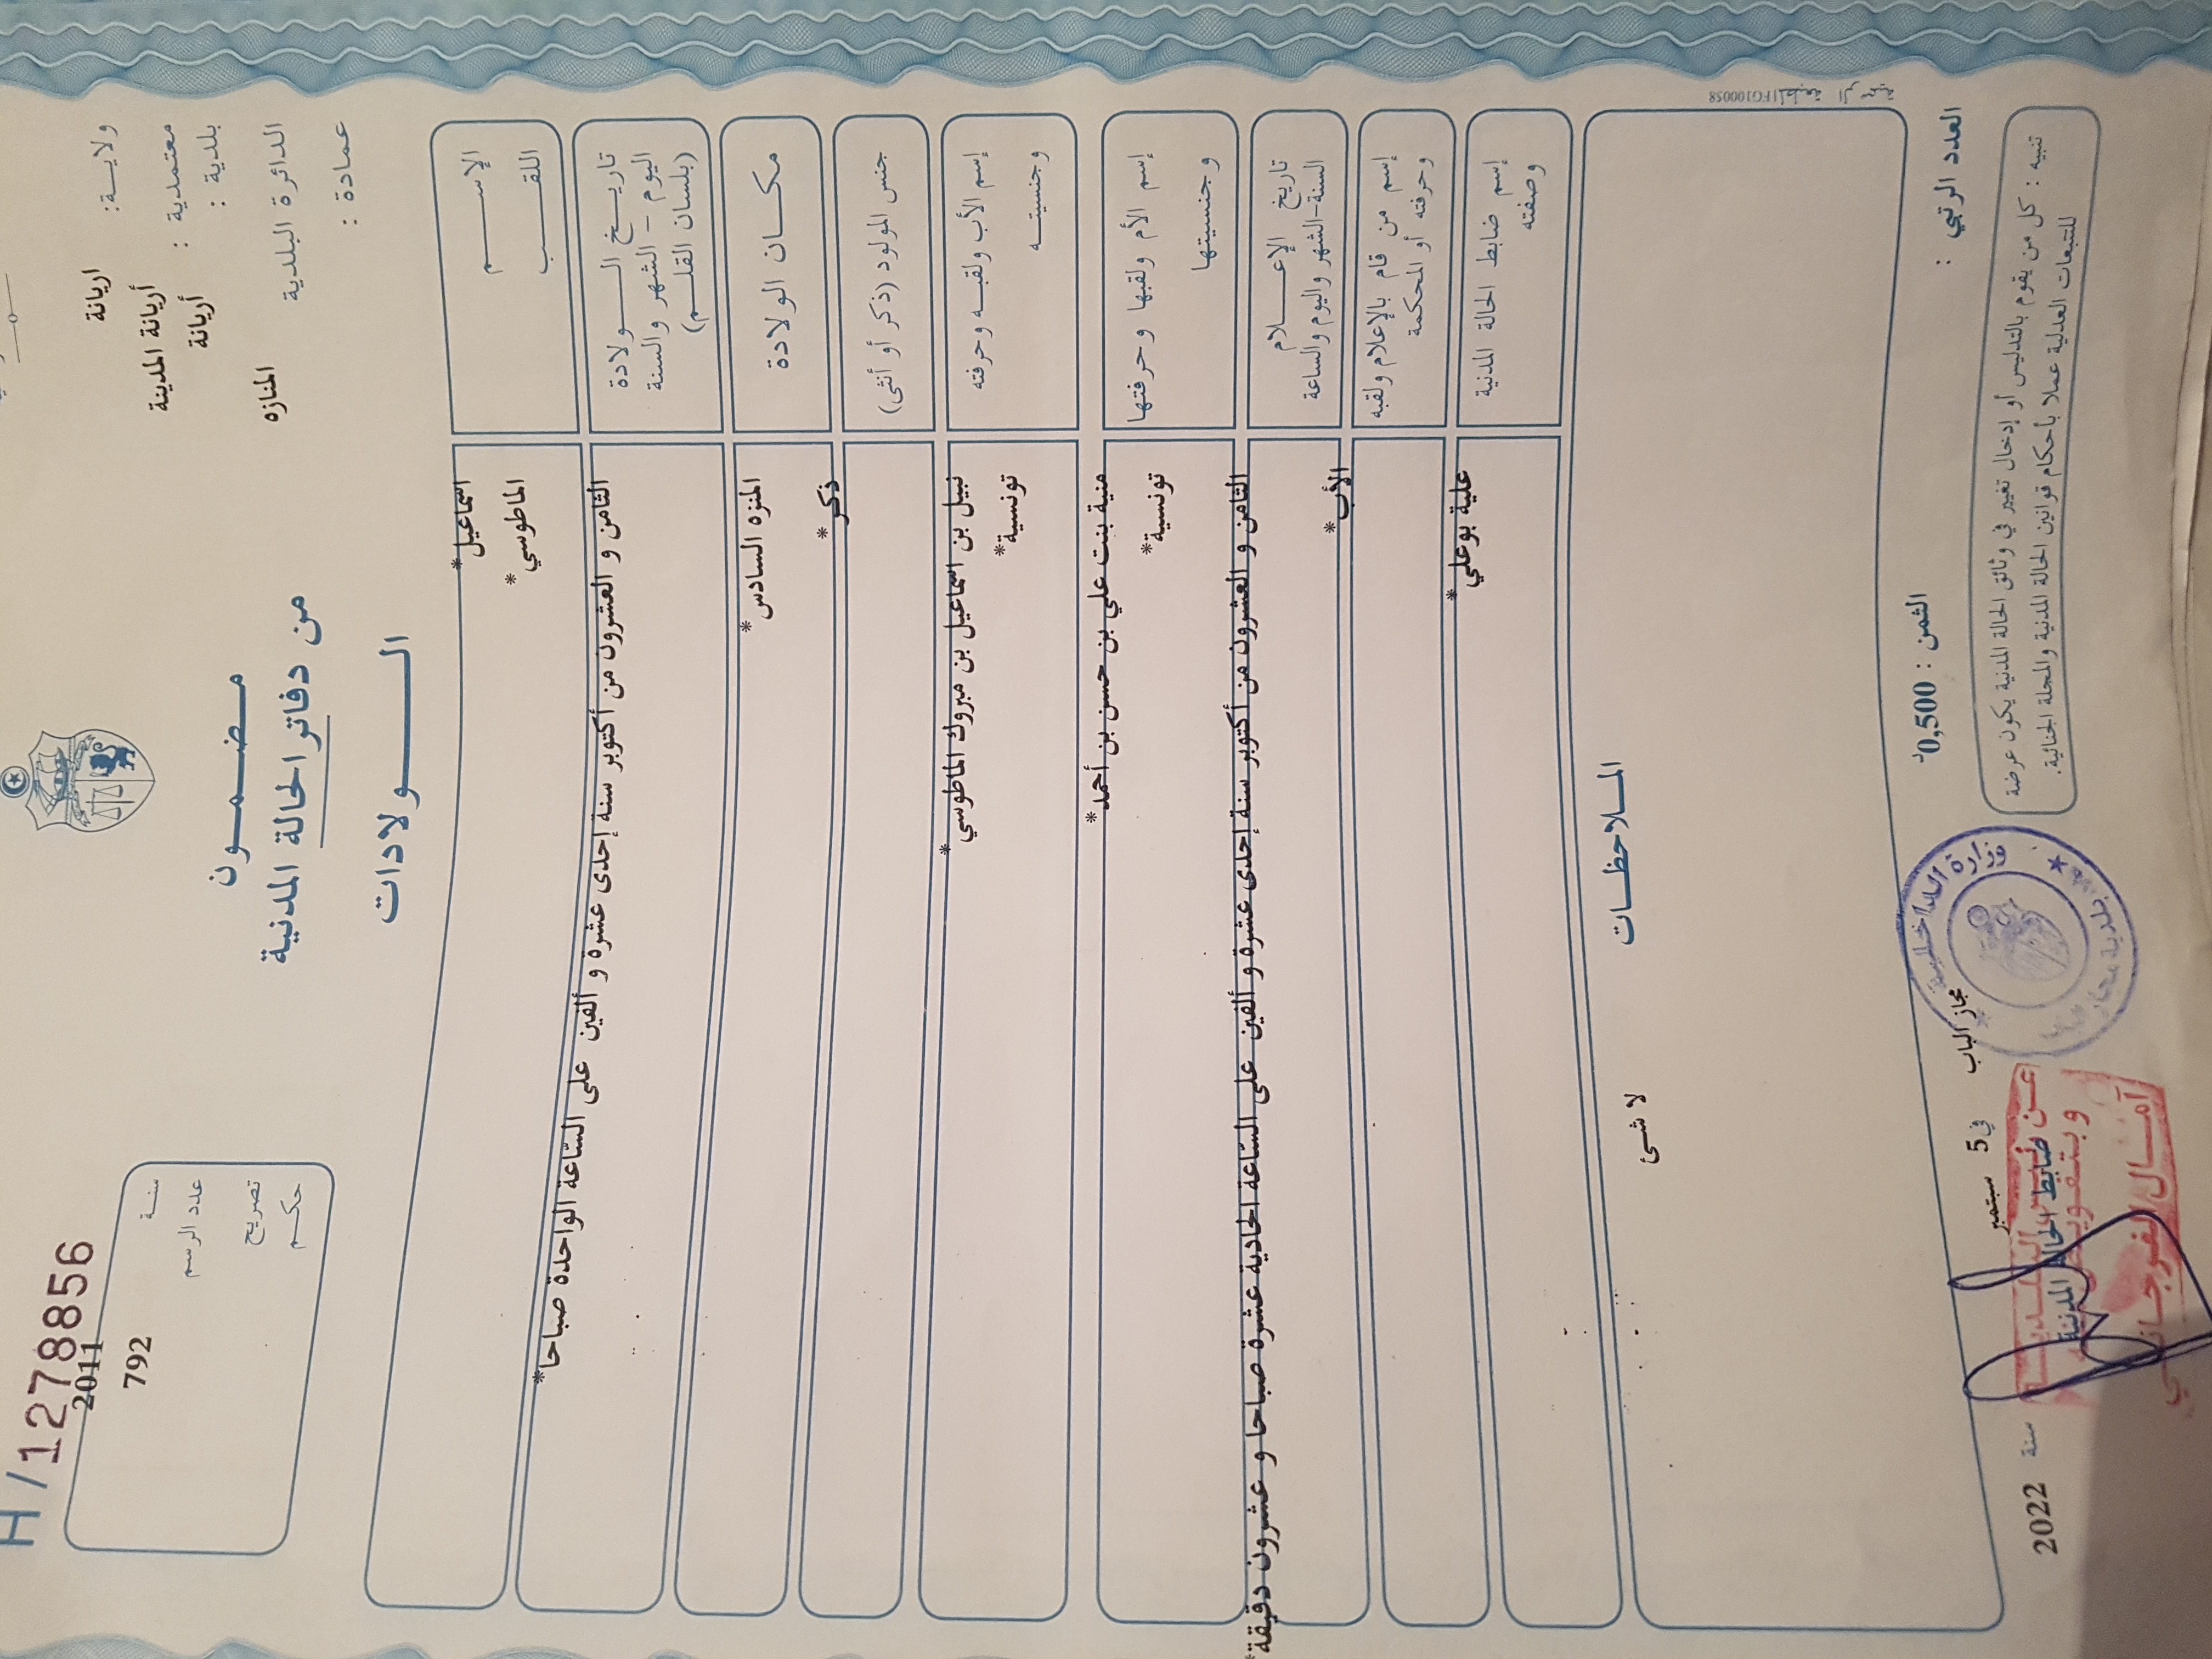 H / 1278856
سنة 2011
عدد الرسم 792
تصريح
حكم
ولاية: اريانة
معتمدية : أريانة المدينة
بلدية : أريانة
الدائرة البلدية المنازه
عمادة :
مضمون
من دفاتر الحالة المدنية
الولادات
الإسم اسماعيل*
اللقب الماطوسي*
تاريخ الولادة
اليوم - الشهر والسنة
(بلسان القلم)
الثامن و العشرون من أكتوبر سنة إحدى عشرة و ألفين على الساعة الواحدة صباحا*
مكان الولادة المنزه السادس*
جنس المولود (ذكر أو أنثى) ذكر*
إسم الأب ولقبه وحرفته نبيل بن اسماعيل بن مبروك الماطوسي*
وجنسيته تونسية*
إسم الأم ولقبها وحرفتها منية بنت علي بن حسن بن أحمد*
وجنسيتها تونسية*
تاريخ الإعلام
السنة-الشهر واليوم والساعة
الثامن و العشرون من أكتوبر سنة إحدى عشرة و ألفين على الساعة الحادية عشرة صباحا و عشرون دقيقة*
إسم من قام بالإعلام ولقبه
وحرفته أو المحكمة
الأب*
إسم ضابط الحالة المدنية
وصفته
علية بوعلي*
الملاحظات
لا شئ
المطبعة الرسمية FG100058
العدد الرتبي :
الثمن : 0,500د
مجاز الباب في 5 سبتمبر سنة 2022
ضابط الحالة المدنية
وزارة الداخلية
بلدية مجاز الباب
وبتفويض
آمال الفرجاني
تنبيه : كل من يقوم بالتدليس أو إدخال تغيير في وثائق الحالة المدنية يكون عرضة
للتتبعات العدلية عملا بأحكام قوانين الحالة المدنية والمجلة الجنائية.